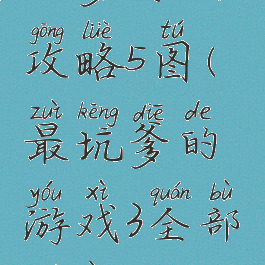 gōng lüè tú
攻略5图(
zuì kēng diē de
最坑爹的
yóu xì quán bù
游戏3全部